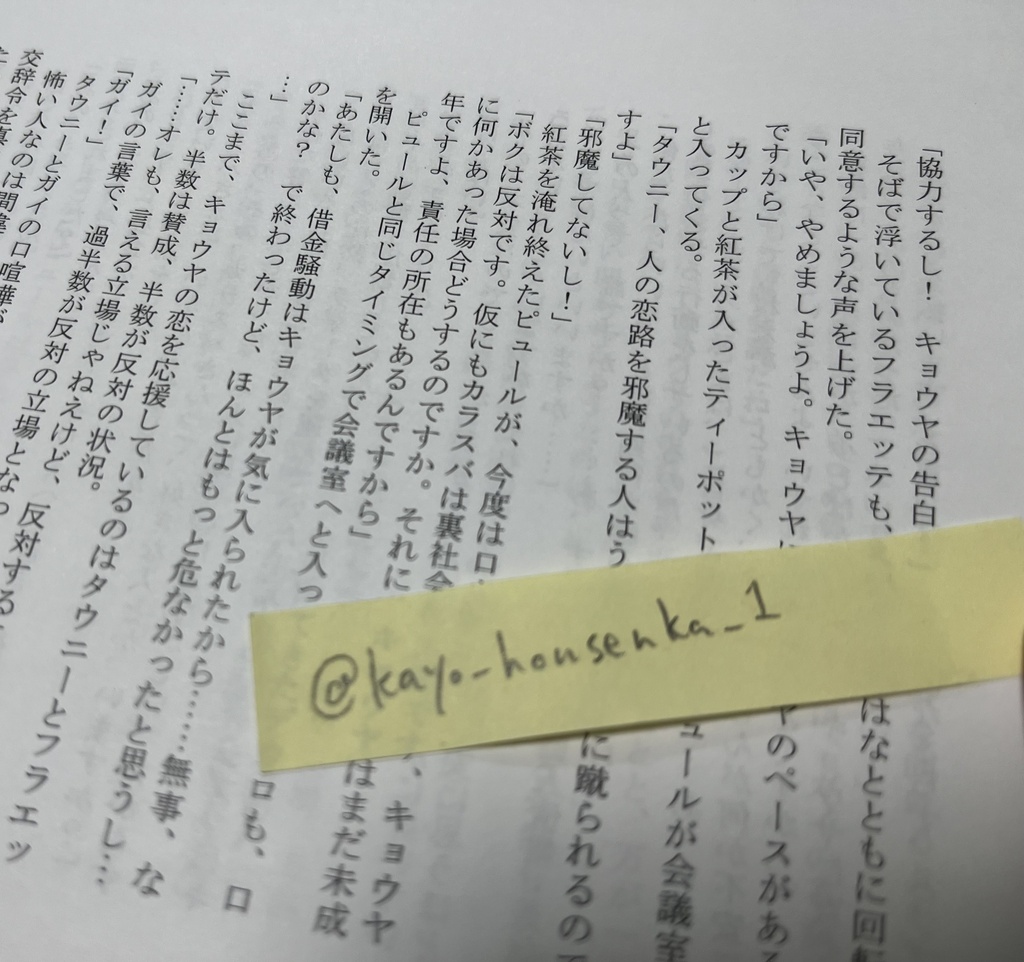 「協力するし！　キョウヤの告白
そばで浮いているフラエッテも、はなとともに回転
同意するような声を上げた。
「いや、やめましょうよ。キョウヤに ヤのペースがある
ですから」
カップと紅茶が入ったティーポット ュールが会議室
と入ってくる。
「タウニー、人の恋路を邪魔する人はう に蹴られるので
すよ」
「邪魔してないし！」
紅茶を淹れ終えたピュールが、今度は口
「ボクは反対です。仮にもカラスバは裏社会 キョウヤ
に何かあった場合どうするのですか。それに はまだ未成
年ですよ、責任の所在もあるんですから」
ピュールと同じタイミングで会議室へと入っ ロも、口
を開いた。
「あたしも、借金騒動はキョウヤが気に入られたから……無事、な
のかな？　で終わったけど、ほんとはもっと危なかったと思うし…
…」
ここまで、キョウヤの恋を応援しているのはタウニーとフラエッ
テだけ。半数は賛成、半数が反対の状況。
「……オレも、言える立場じゃねえけど、反対する
ガイの言葉で、過半数が反対の立場となっ
「ガイ！」
タウニーとガイの口喧嘩が
怖い人なのは間違
交辞令を真
@kayo_housenka_1